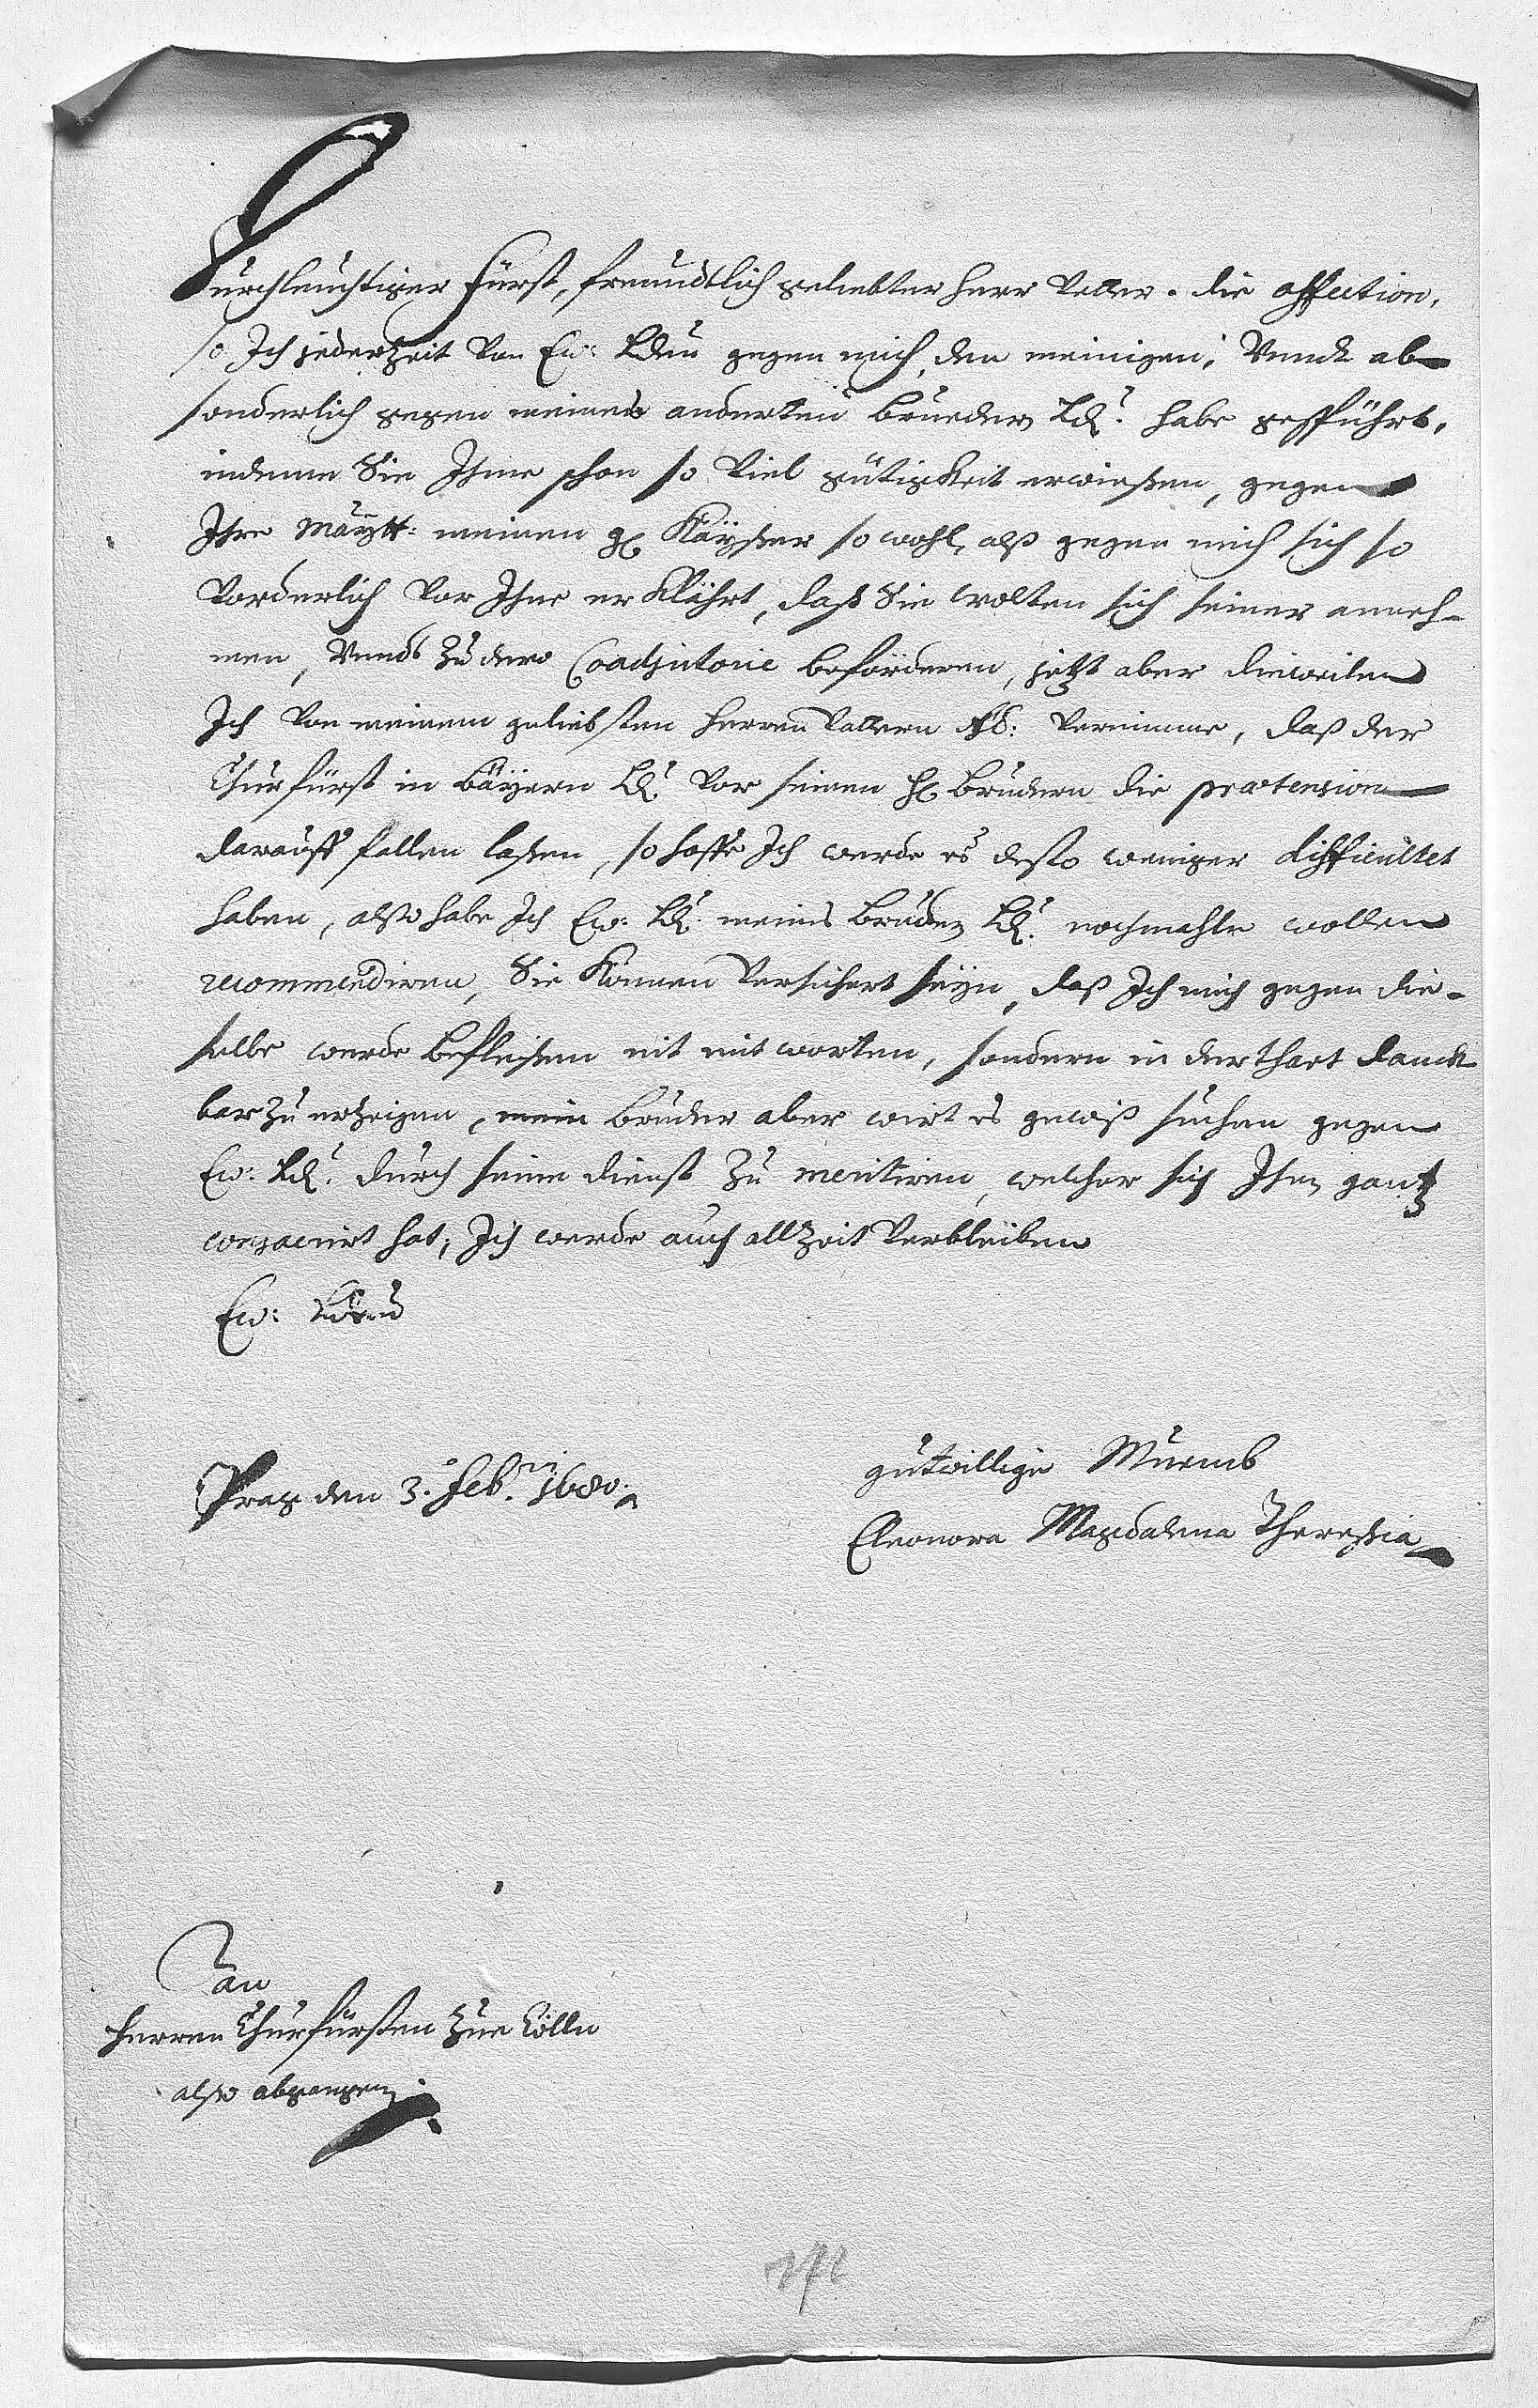 Durchleuchtiger Fürst, freundtlich geliebter Herr Vetter. die affection,
so Ich jederzeit von Ew: Lden gegen mich, den meinigen, Vnndt ab-
sonderlich gegen meines anderten Brueders Ld: habe gespührt,
indeme Sie Ihme schon so viel gütigkeit erwiesen, gegen
Ihre Maÿtt: meinen g. Kaÿser so wohl, alß gegen mich sich so
vorderlich vor Ihne erklährt, daß Sie wolten sich seiner anneh-
men, Vnndt zu dero Coadjutorie beförderen, jetzt aber dieweilen
Ich von meinem geliebsten Herren Vattern vernimme, daß der
Churfürst in Baÿern Ld: vor seinen H. Brudern die prætension
darauff fallen laßen, so hoffe Ich werde es desto weniger difficultet
haben, alßo habe Ich Ew: Ld: meins Bruders Ld: nochmahls wollen
recommendiren, Sie können versichert seÿn, daß Ich mich gegen die-
selbe werde befleißen nit mit worten, sondern in der thatt danck-
bar zu erzeigen, mein Bruder aber wirt es gewiß suchen gegen
Ew: Ld: durch seine dienst zu meritiren, welcher sich Ihr gantz
consacrirt hat; Ich werde auch allzeit verbleiben
Ew: Lden
gutwillige Muemb
Prag den 3. Feb. 1680.
Eleonora Magdalena Theresia
An
Herren Churfürsten zue Cölln
also abgangen